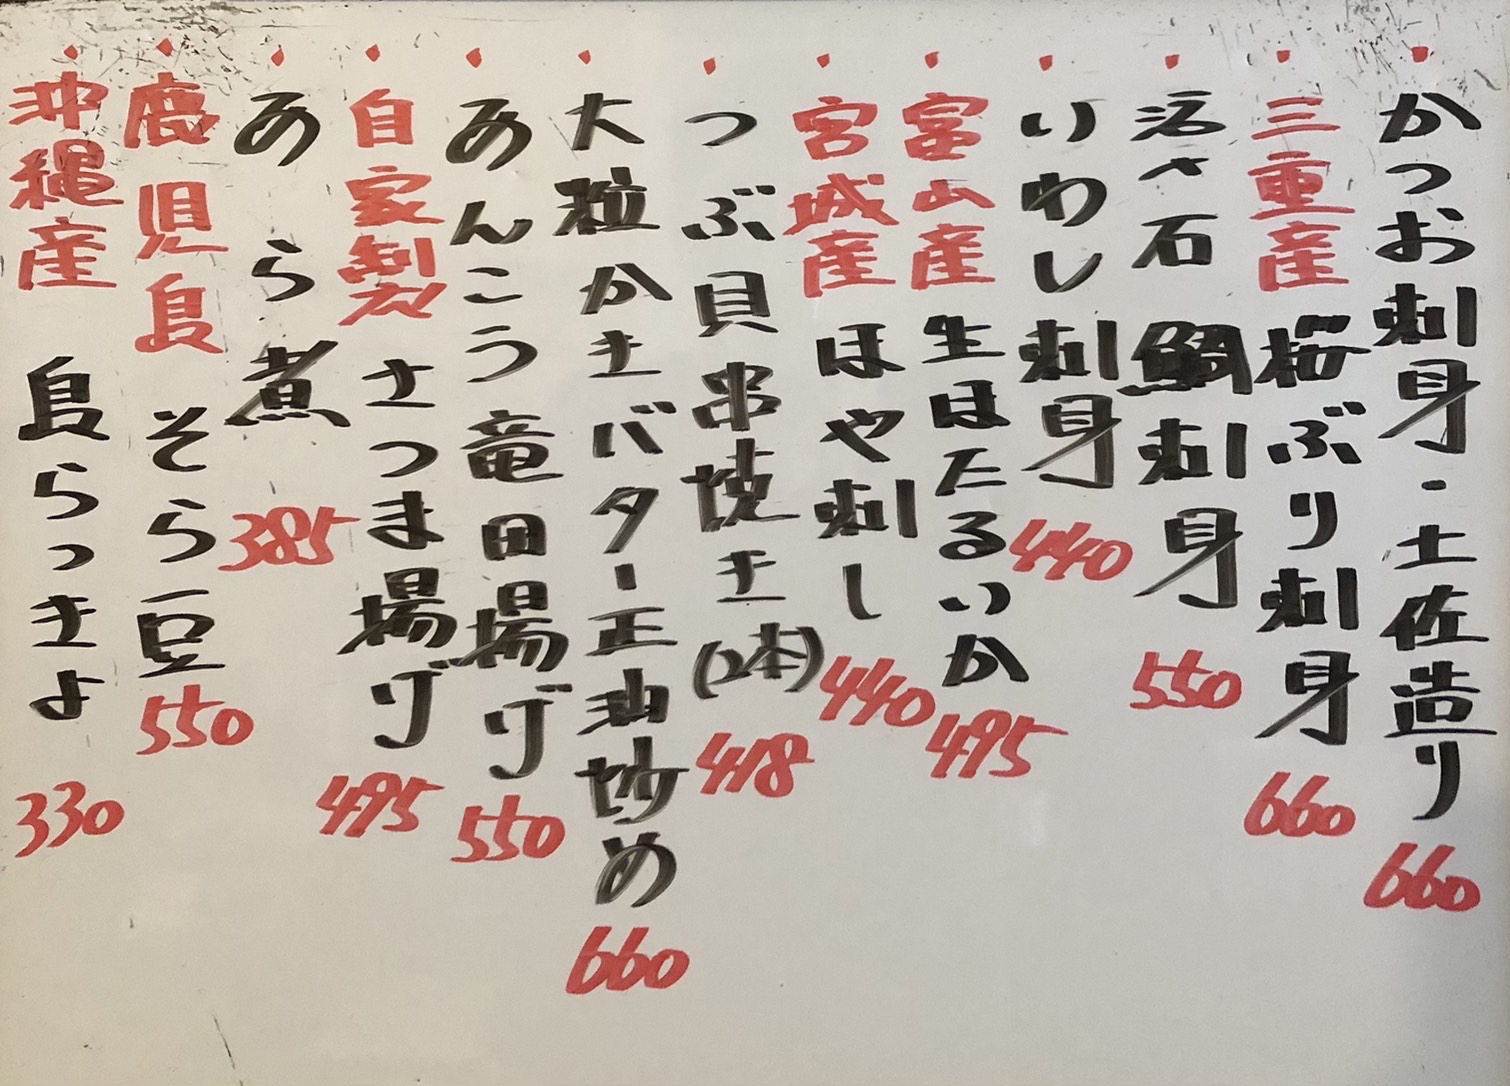 ・かつお刺身・土佐造り 660
・三重産 桜ぶり刺身 660
・活〆石鯛刺身 550
・いわし刺身 440
・富山産 生ほたるいか 495
・宮城産 ほや刺し 440
・つぶ貝串焼き(2本) 418
・大粒かきバター正油炒め 660
・あんこう竜田揚げ 550
・自家製 さつま揚げ 495
・あら煮 385
・鹿児島 そら豆 550
・沖縄産 島らっきょ 330